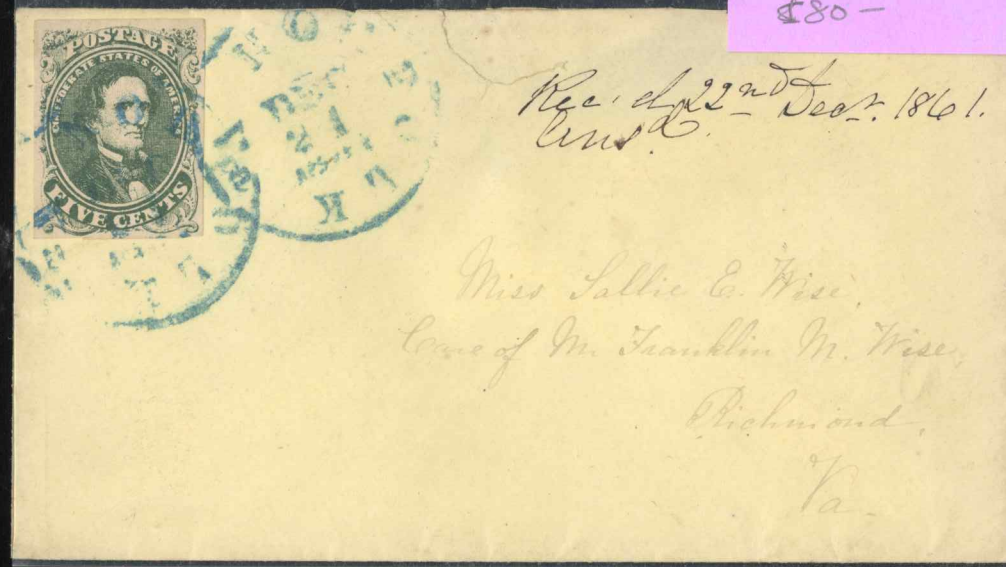 $80-
POSTAGE
CONFEDERATE STATES OF AMERICA
FIVE CENTS
NORFOLK
DEC
21
Rec.d 22nd Decr. 1861.
Ansd.
Miss Sallie E. Wise,
Care of Mr Franklin M. Wise,
Richmond,
Va